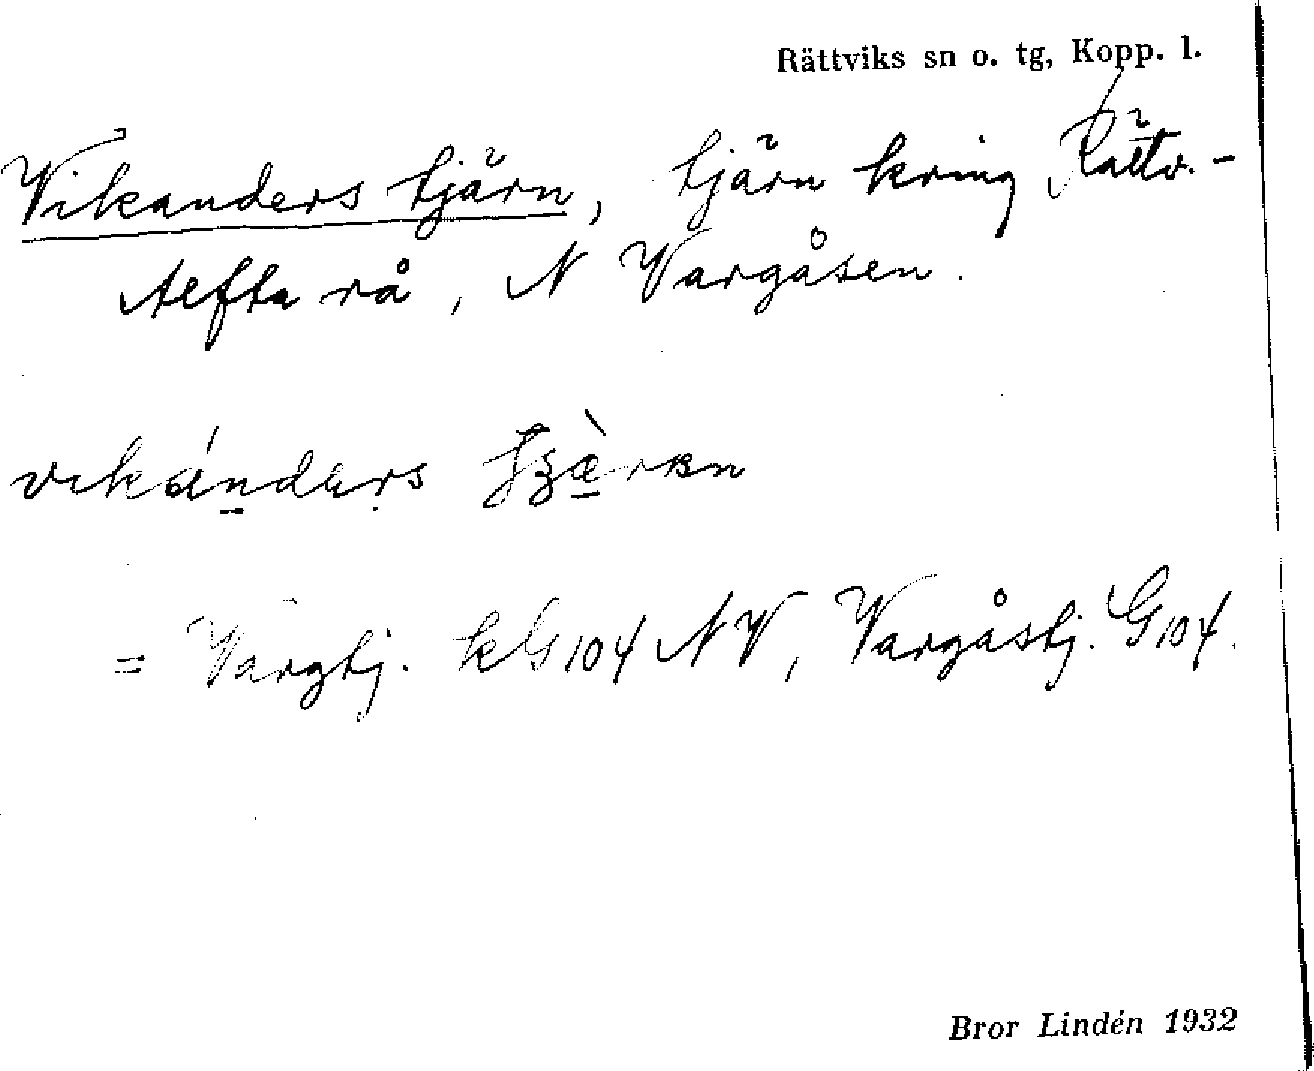 Rättviks sn o. tg, Kopp. l.
Vikanders tjärn, tjärn kring Rättv.-
Alfta rå, N Vargåsen.
vikándərs
= Vargtj. kG104 NV, Vargåstj. G104.
Bror Lindén 1932